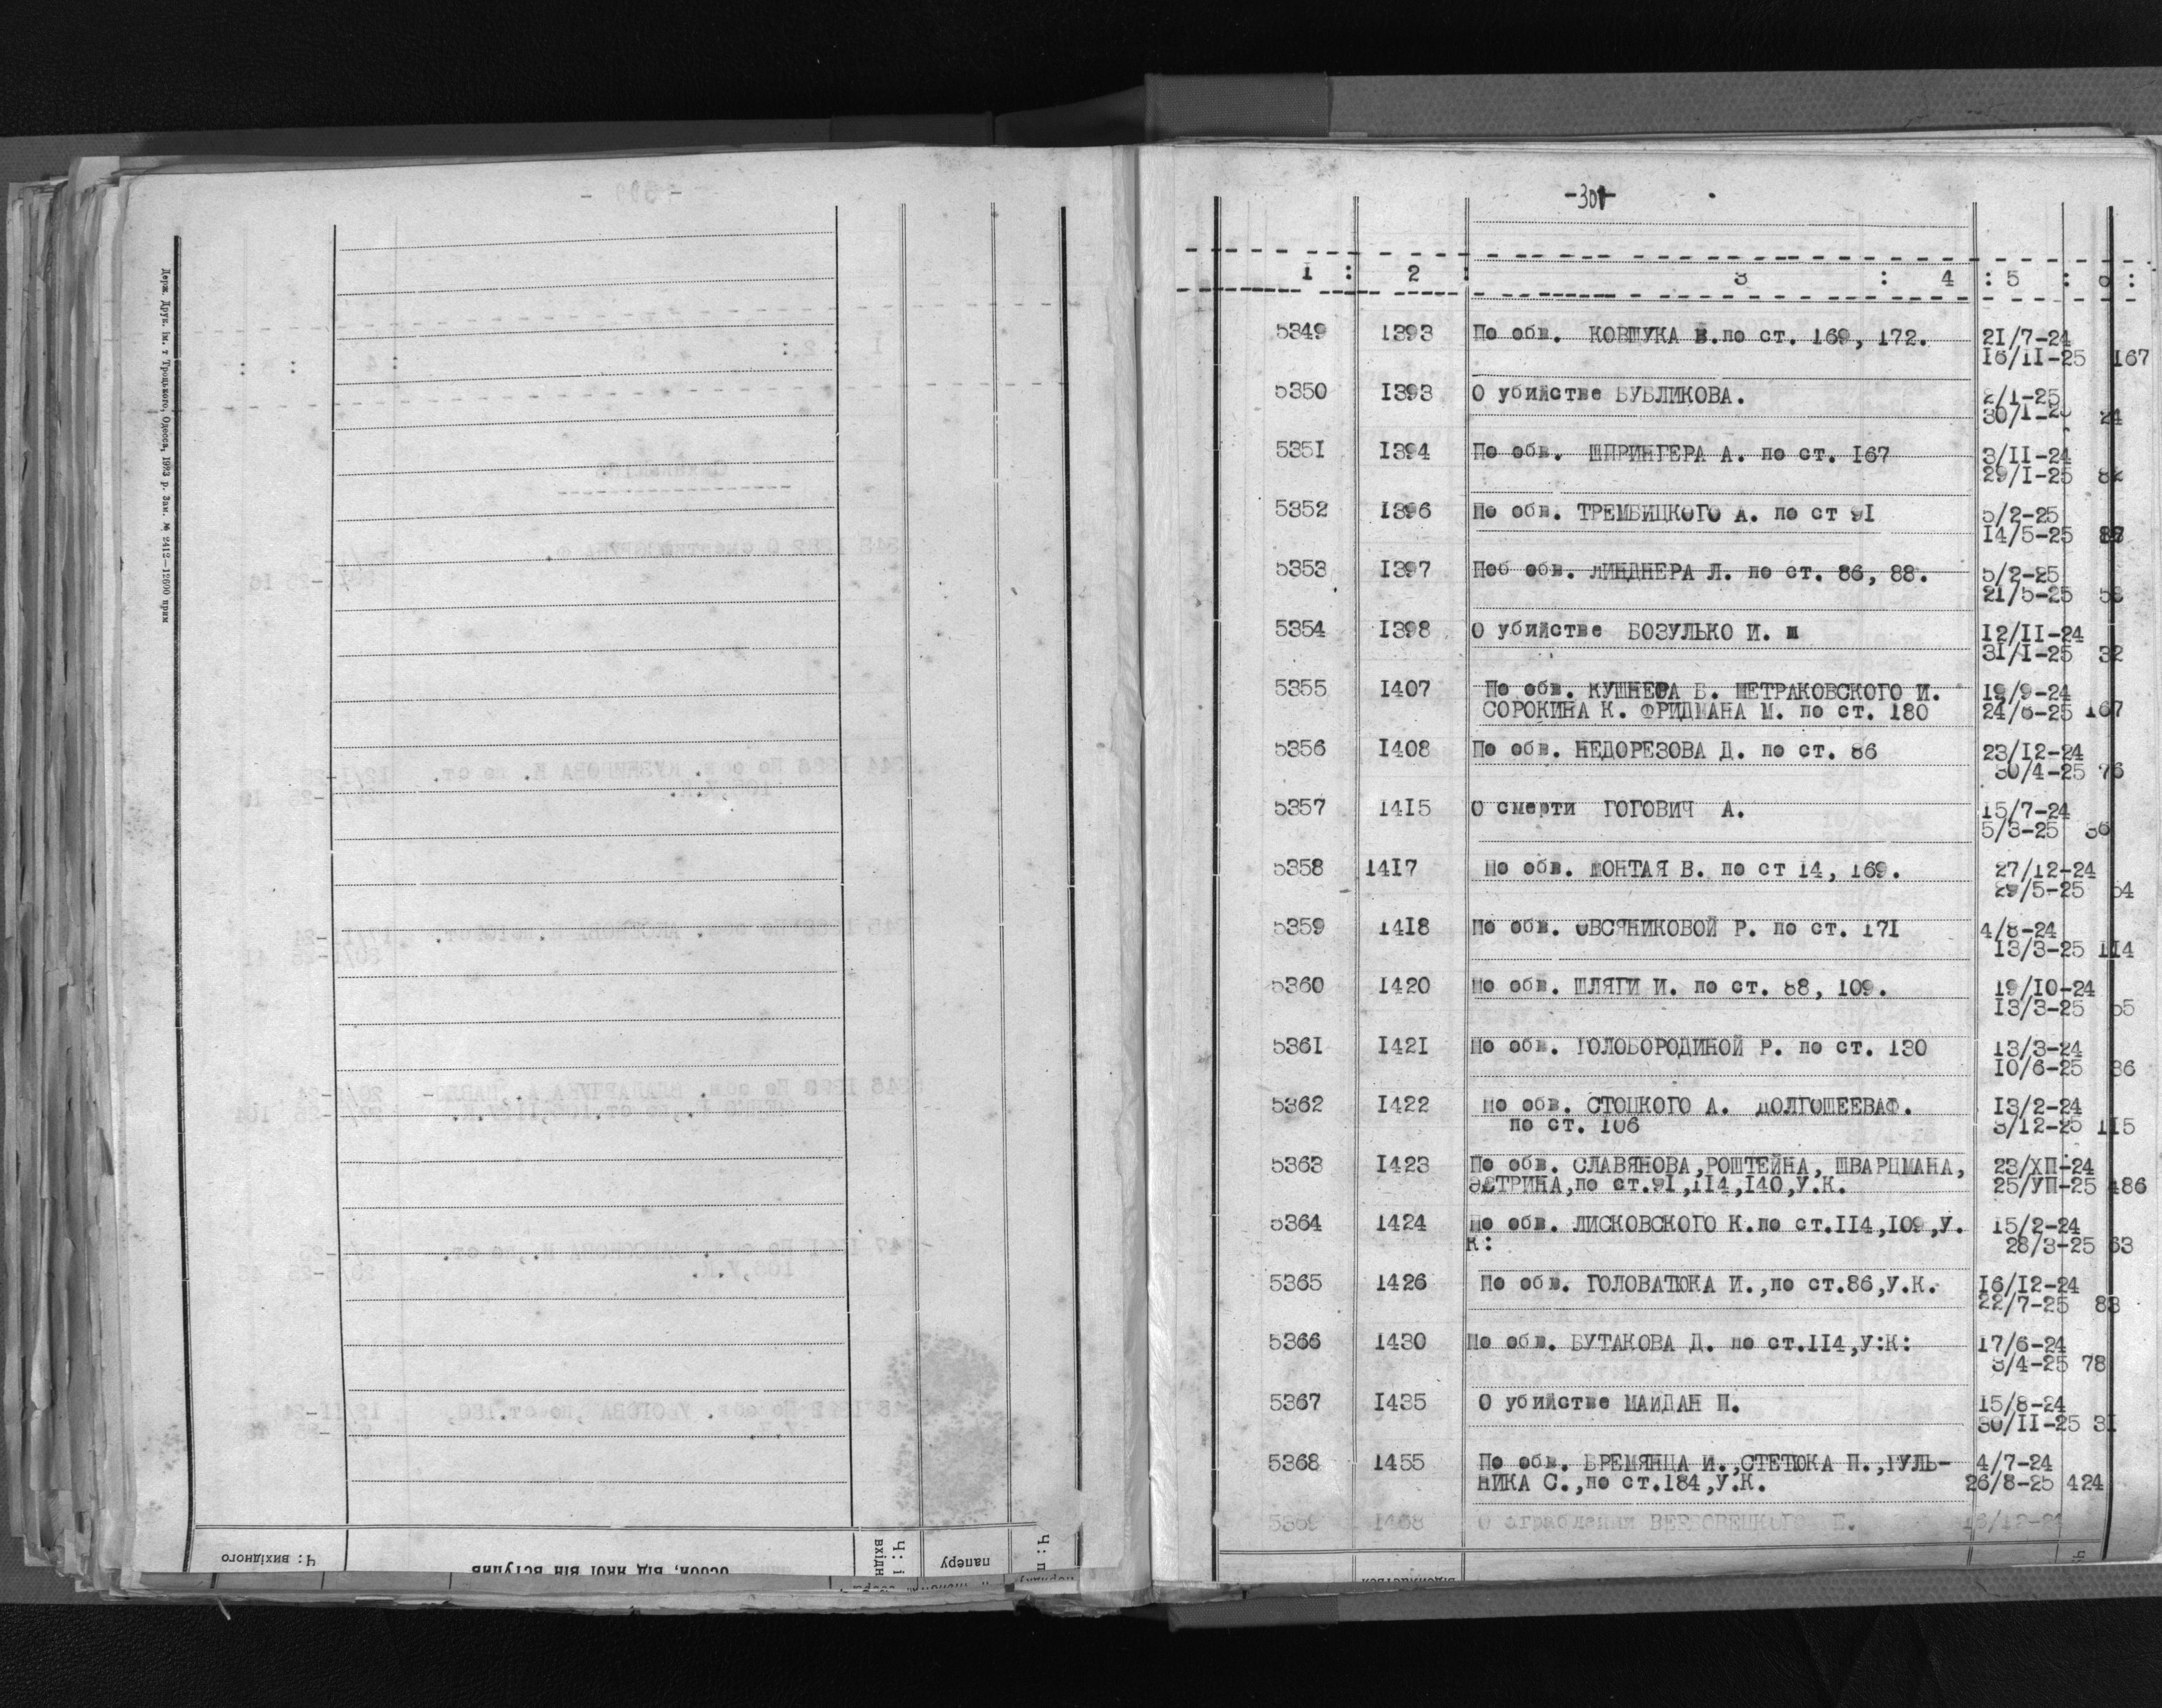 Держ. Друк. ім. т Троцького, Одесса, 1923 р. Зам. № 2412—12600 прим
Ч: вихідного
особи, від якої він вступив
Ч: і
вхідн
паперу
-301-
1 : 2 : 3 : 4 : 5 : 6 :
5349 1393 По обв. КОВШУКА В.по ст. 169, 172. 21/7-24
16/11-25 167
5350 1393 О убийстве БУБЛИКОВА. 2/1-25
30/1-25 24
5351 1394 По обв. ШПРИНГЕРА А. по ст. 167 3/11-24
29/1-25 82
5352 1396 По обв. ТРЕМБИЦКОГО А. по ст 91 5/2-25
14/5-25
5353 1397 Поб обв. ЛИНДНЕРА Л. по ст. 86, 88. 5/2-25
21/5-25 53
5354 1398 О убийстве БОЗУЛЬКО И. 12/11-24
31/1-25 32
5355 1407 По обв. КУШНЕРА Б. ПЕТРАКОВСКОГО И. 19/9-24
СОРОКИНА К. ФРИДМАНА М. по ст. 180 24/6-25 167
5356 1408 По обв. НЕДОРЕЗОВА Д. по ст. 86 23/12-24
30/4-25 76
5357 1415 О смерти ГОГОВИЧ А. 15/7-24
5/3-25 36
5358 1417 По обв. МОНТАЯ В. по ст 14, 169. 27/12-24
29/5-25 54
5359 1418 По обв. ОВСЯНИКОВОЙ Р. по ст. 171 4/8-24
13/3-25 114
5360 1420 По обв. ШЛЯГИ И. по ст. 88, 109. 19/10-24
13/3-25 55
5361 1421 По обв. ГОЛОБОРОДИНОЙ Р. по ст. 130 13/3-24
10/6-25 36
5362 1422 По обв. СТОЦКОГО А. ДОЛГОШЕЕВАФ. 13/2-24
по ст. 106 3/12-25 115
5363 1423 По обв. СЛАВЯНОВА,РОШТЕЙНА, ШВАРЦМАНА, 23/ХП-24
ЭСТРИНА,по ст.91,114,140,У.К. 25/УП-25 486
5364 1424 По обв. ЛИСКОВСКОГО К.по ст.114,109,У. 15/2-24
К: 28/3-25 63
5365 1426 По обв. ГОЛОВАТЮКА И.,по ст.86,У.К. 16/12-24
22/7-25 83
5366 1430 По обв. БУТАКОВА Д. по ст.114,У:К: 17/6-24
3/4-25 78
5367 1435 О убийстве МАЙДАН П. 15/8-24
30/11-25 31
5368 1455 По обв. БРЕМЯНЦА И.,СТЕТЮКА П.,ГУЛЬ- 4/7-24
НИКА С.,по ст.184,У.К. 26/8-25 424
5369 1468 О ограблении ВЕРБОВЕЦКОГО Е. 16/12-24